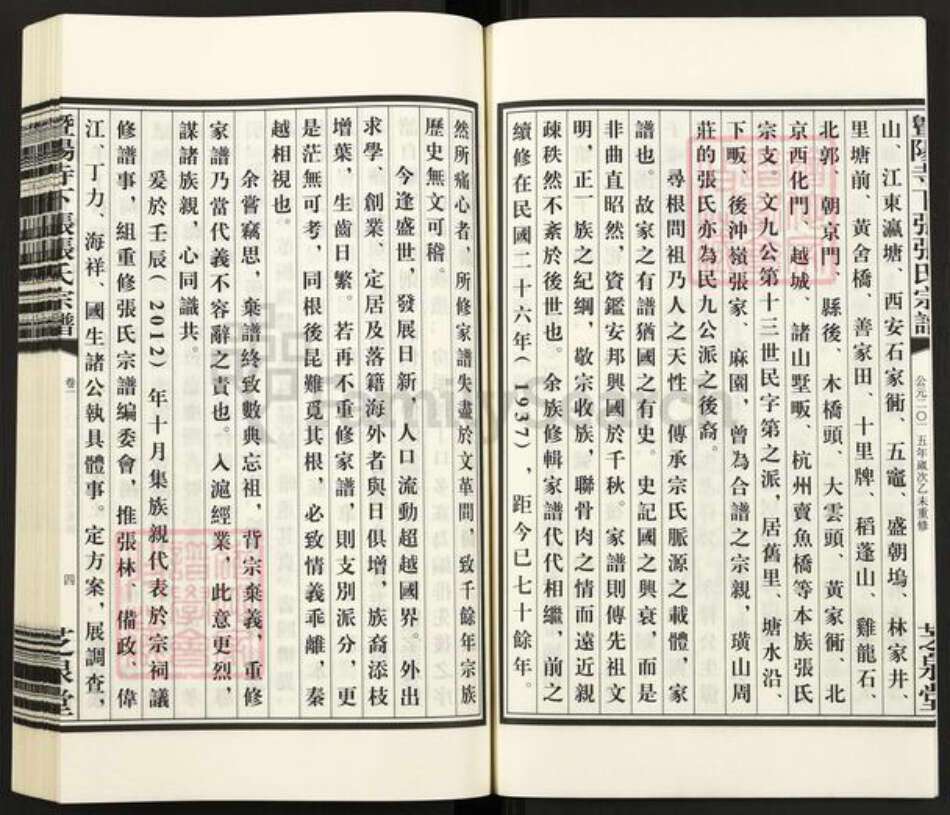 山、江東瀛塘、西安石家衕、五竈、盛朝塢、林家井、
里塘前、黃舍橋、善家田、十里牌、稻蓬山、雞龍石、
北郭、朝京門、縣後、木橋頭、大雲頭、黃家衕、北
京西化門、越城、諸山墅畈、杭州賣魚橋等本族張氏
宗支。文九公第十三世民字第之派，居舊里、塘水沿、
下畈、後沖嶺張家、麻園，曾為合譜之宗親，璜山周
莊的張氏亦為民九公派之後裔。
尋根問祖乃人之天性，傳承宗氏脈源之載體，家
譜也。故家之有譜猶國之有史。史記國之興衰，而是
非曲直昭然，資鑑安邦興國於千秋。家譜則傳先祖文
明，正一族之紀綱，敬宗收族，聯骨肉之情而遠近親
疎秩然不紊於後世也。余族修輯家譜代代相繼。前之
續修在民國二十六年（1937），距今已七十餘年。
公元二〇一五年歲次乙未重修
芝泉堂
然所痛心者，所修家譜失盡於文革間，致千餘年宗族
歷史無文可稽。
今逢盛世，發展日新，人口流動超越國界。外出
求學、創業、定居及落籍海外者與日俱增，族裔添枝
增葉，生齒日繁。若再不重修家譜，則支別派分，更
是茫無可考，同根後昆難覓其根，必致情義乖離，本秦
越相視也。
余嘗竊思，棄譜終致數典忘祖，背宗棄義，重修
家譜乃當代義不容辭之責也。入滬經業，此意更烈，
謀諸族親，心同識共。
爰於壬辰（2012）年十月集族親代表於宗祠議
修譜事，組重修張氏宗譜編委會，推張林、備政、偉
江、丁力、海祥、國生諸公執具體事。定方案，展調查，
暨陽寺下張張氏宗譜
卷一
四
芝泉堂
FamilySearch